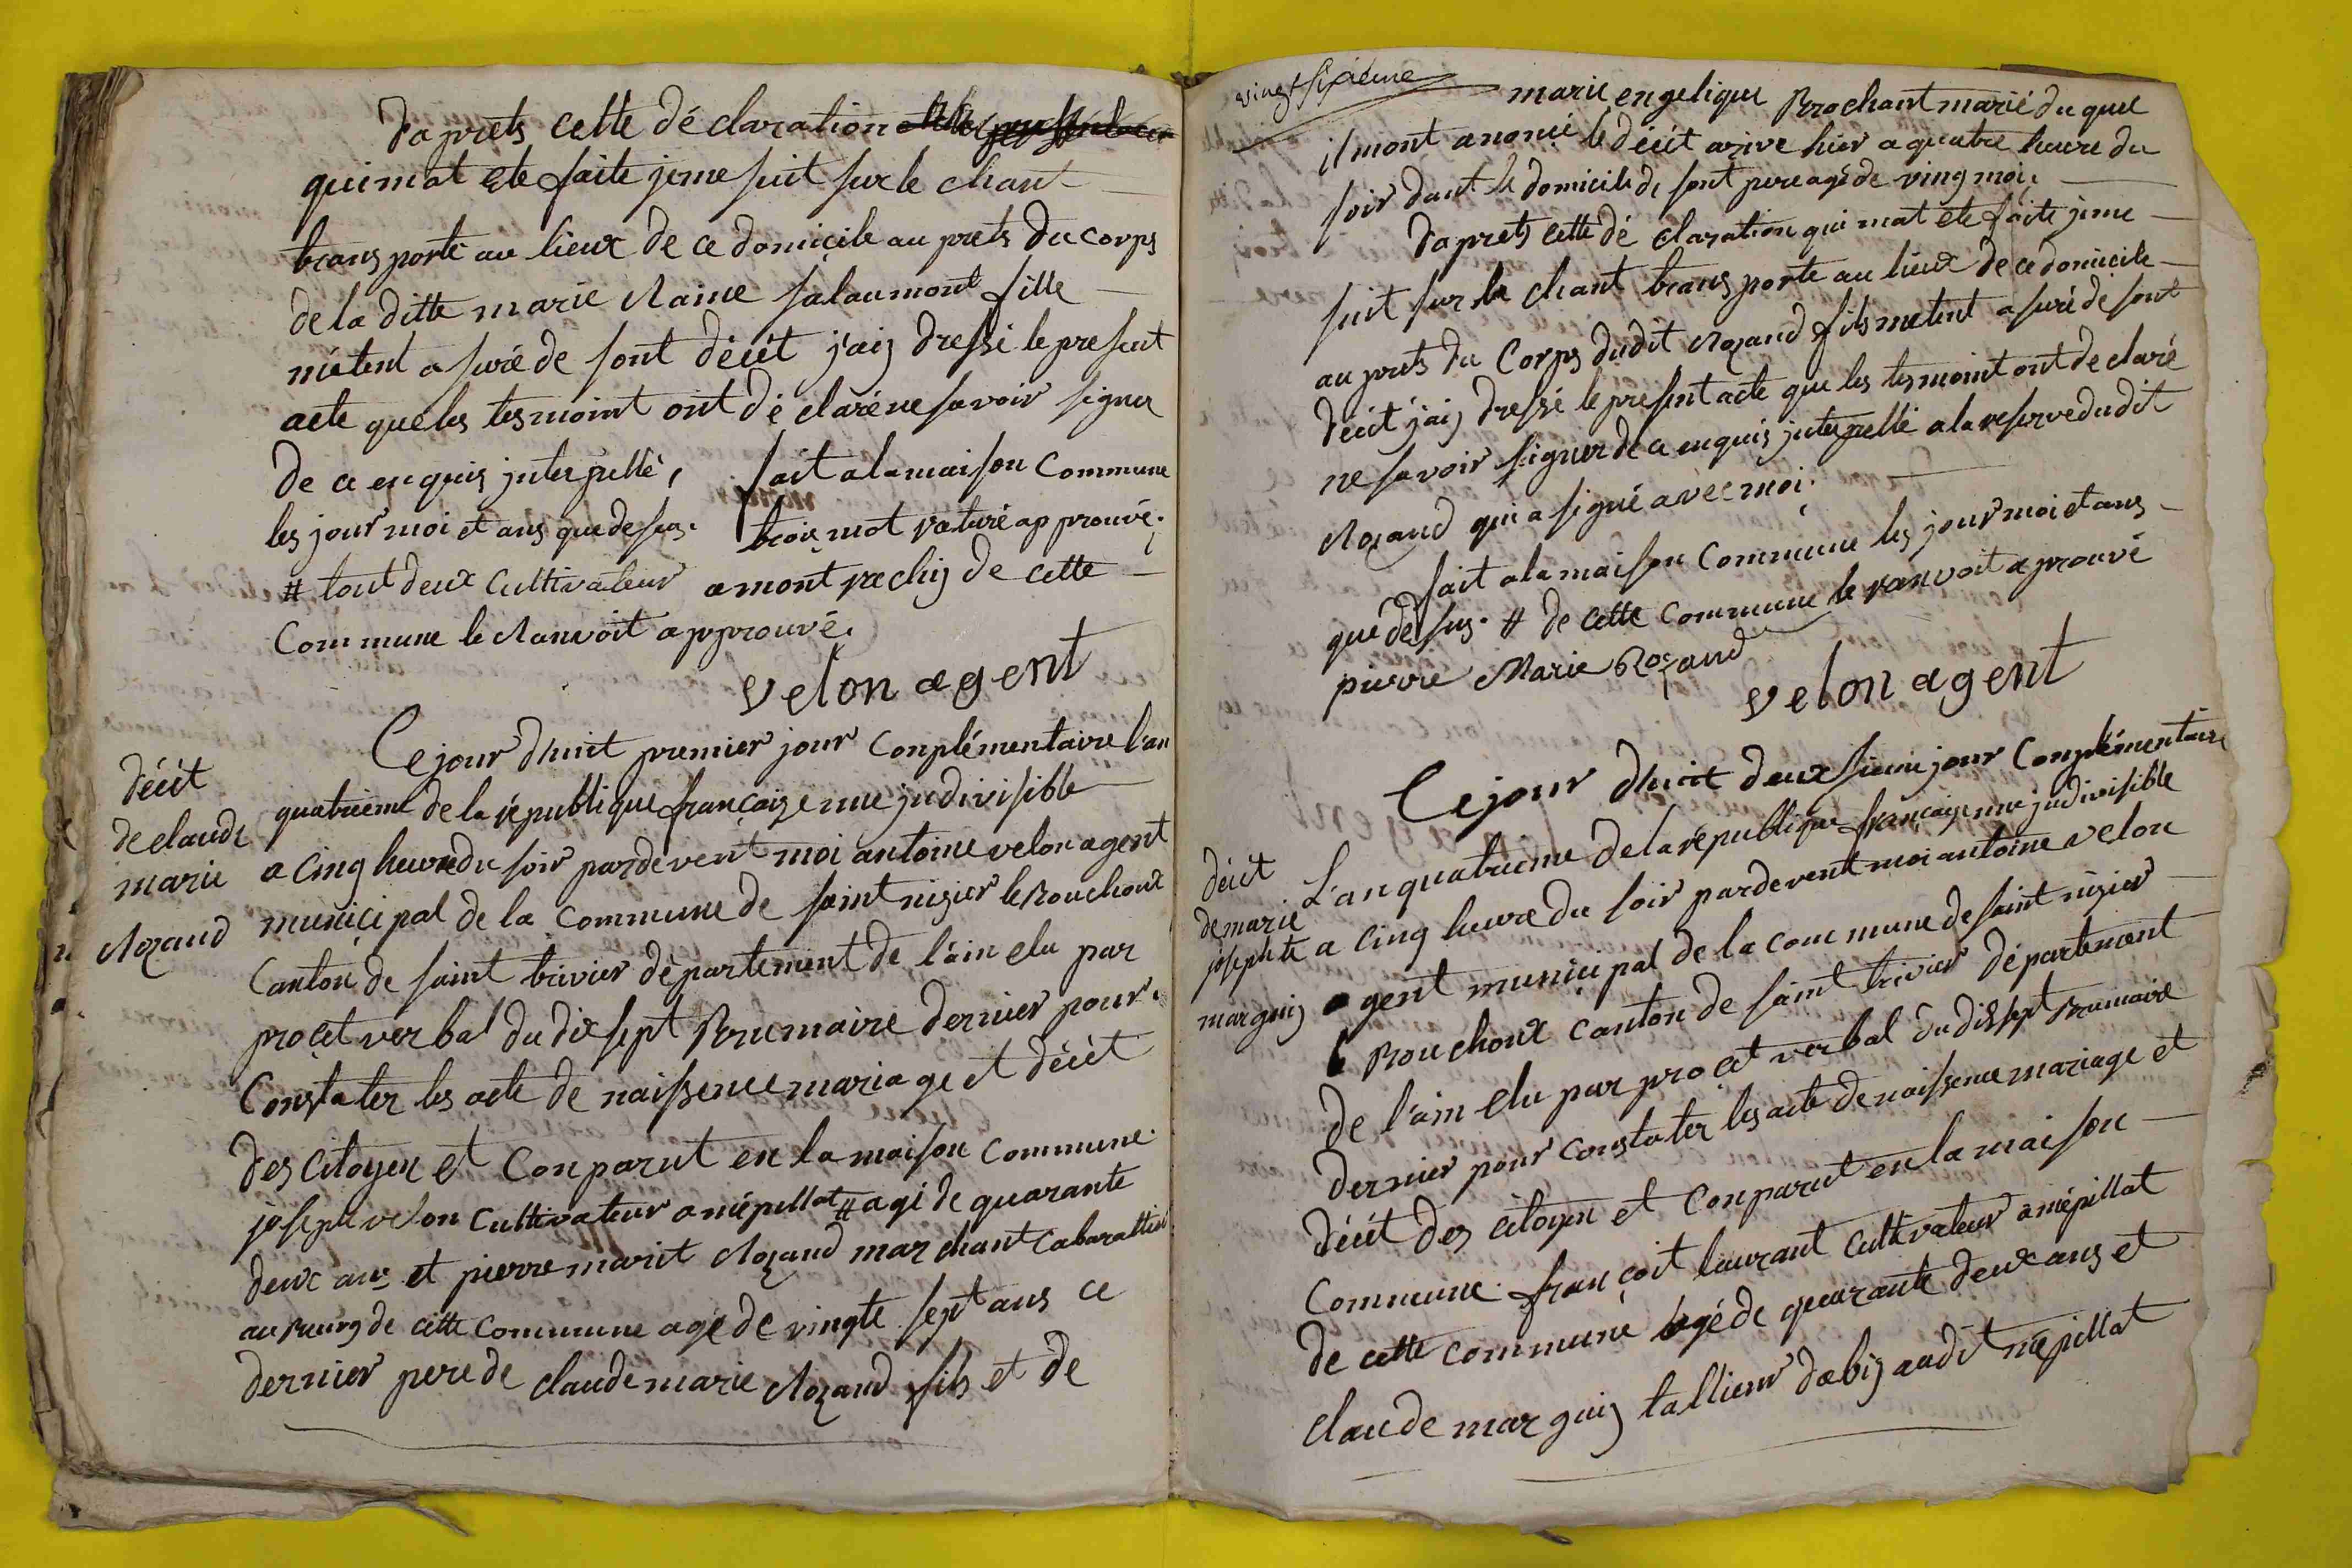 Daprets cette dé claration
quimat ete faite jeme suit sur le chant
transporté au lieux de ce domicile au prets du corps
de la ditte marie Raine salaumont fille
métent asuré de sont décét j'aij dressé le present
acte que les tesmoint ont dé claré ne savoir signer
de ce enquis juterpellé, fait a la maison Commune
les jour moi et ans que desus. trois mot raturé approuvé.
# tout deux Cultivateur a mont rachij de cette
Commune le Ranvoit approuvé.
velon agent
décét
de claude
marie
Rozand
Ce jour d'huit premier jour Conplémentaire l'an
quatrieme de la république françaize une judivisible
a cinq heure du soir pardevent moi antoine velon agent
municipal de la Commune de saint nizier le Bouchoux
Canton de saint trivier département de l'ain elu par
procet verbal du dix sept Brumaire dernier pour
Constater les acte de naissence mariage et décét
des citoyen et Conparut en la maison Commune
joseph velon Cultivateur a mépillat # agé de quarante
deux ans et pierre marit Rozand marchant Cabarattier
au Bourg de cette Commune agé de vingte sept ans ce
dernier pere de claude marie Rozand fils et de
vingt sixieme
marie engelique Brochant marié du quel
il mont anoncé le décét arivé hier a quatre heure du
soir dant le domicile de sont pere agé de ving moi.
Daprets cette dé claration qui mat ete faite jeme
suit sur le chant transporté au lieux de ce domicile
au prets du Corps dudit Rozand fils métent asuré de sont
décét j'aij dressé le present acte que les tesmoint ont de claré
ne savoir signer de ce enquis juterpellé a la reserve dudit
Rozand qui a signé avec moi.
fait a la maison Commune les jour moi et ans
que desus. # de cette Commune le ranvoit aprouvé
pierre Marie Rozand
velon agent
décét
de marie
josephte
marguij
Ce jour d'huit deuxsieme jour Conplémentaire
L'an quatrieme de la république française une judivisible
a cinq heure du soir pardevent moi antoine velon
agent municipal de la commune de saint nizier
le Bouchoux canton de saint trivier département
de l'ain elu par procet verbal du dis sept Brumaire
dernier pour constater les acte de naissence mariage et
décét des citoyen et Conparut en la maison
Commune. françoit laurant cultivateur a mépillat
de cette commune agé de quarante deux ans et
claude marguij tallieur dabij audit mépillat